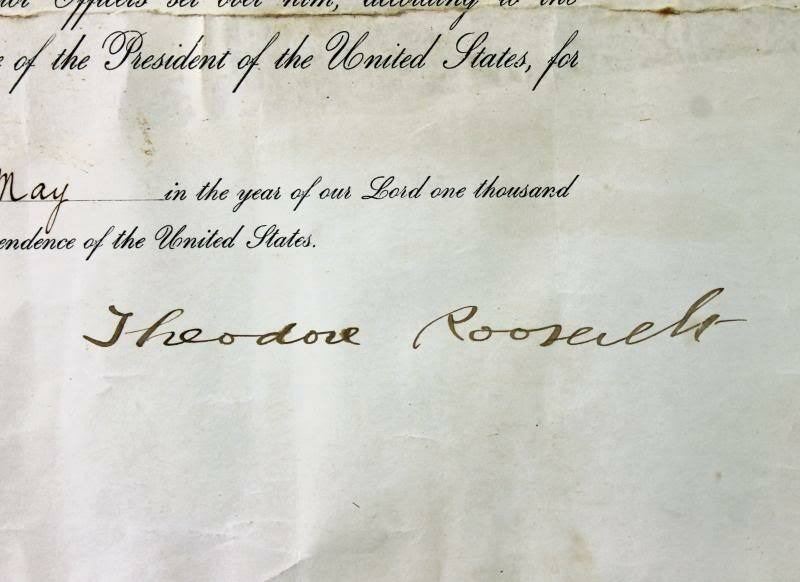 Officers set over him, according to the
of the President of the United States, for
May in the year of our Lord one thousand
endence of the United States.
Theodore Roosevelt